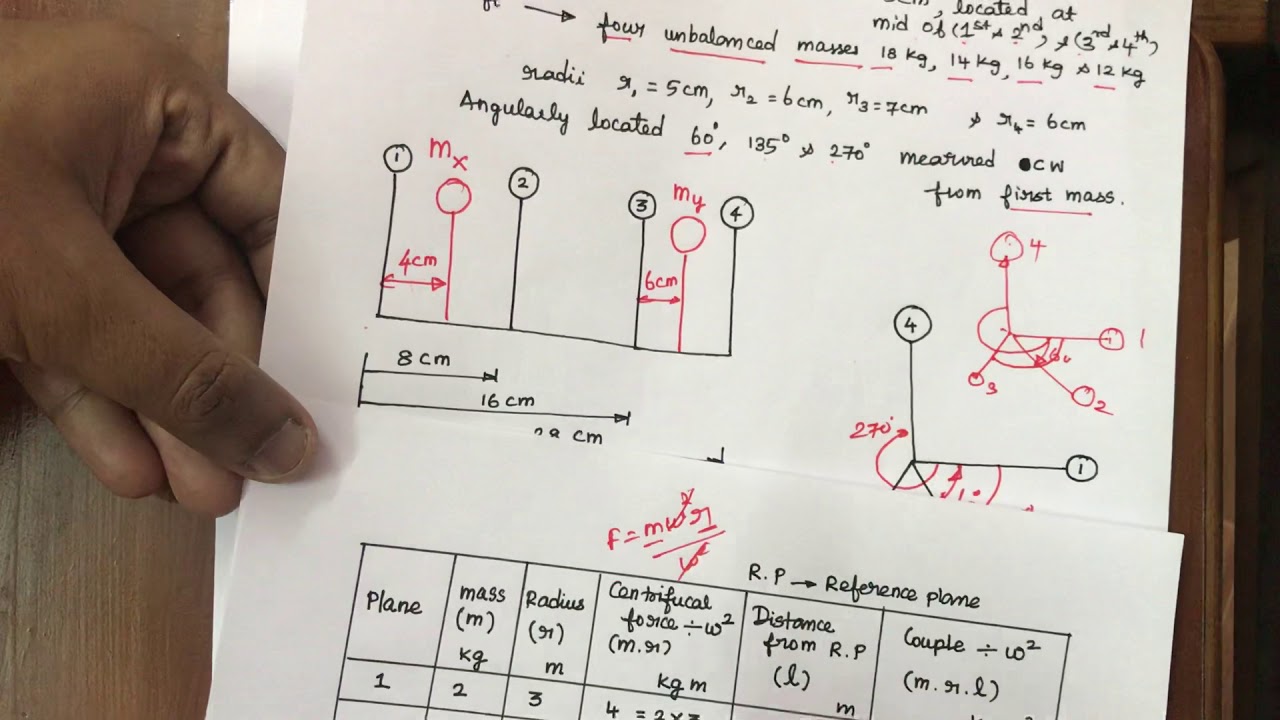 located at
mid of (1st & 2nd), & (3rd & 4th)
four unbalanced masses 18 kg, 14 kg, 16 kg & 12 kg
radii r₁ = 5 cm, r₂ = 6 cm, r₃ = 7cm & r₄ = 6cm
Angularly located 60°, 135° & 270° measured CW
from first mass.
1 mx 2 3 my 4
4cm 6cm
8 cm
16 cm
cm
4
1
2
3
4
270°
1
F = mω²r
ω²
R.P → Reference plane
Plane
mass
(m)
kg
Radius
(r)
m
Centrifucal
force ÷ ω²
(m.r)
kg m
Distance
from R.P
(l)
m
Couple ÷ ω²
(m.r.l)
1 2 3 4 = 2x3